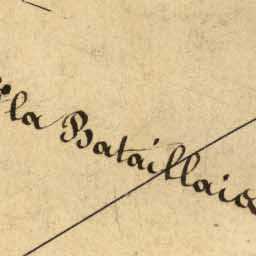 la Bataillaise